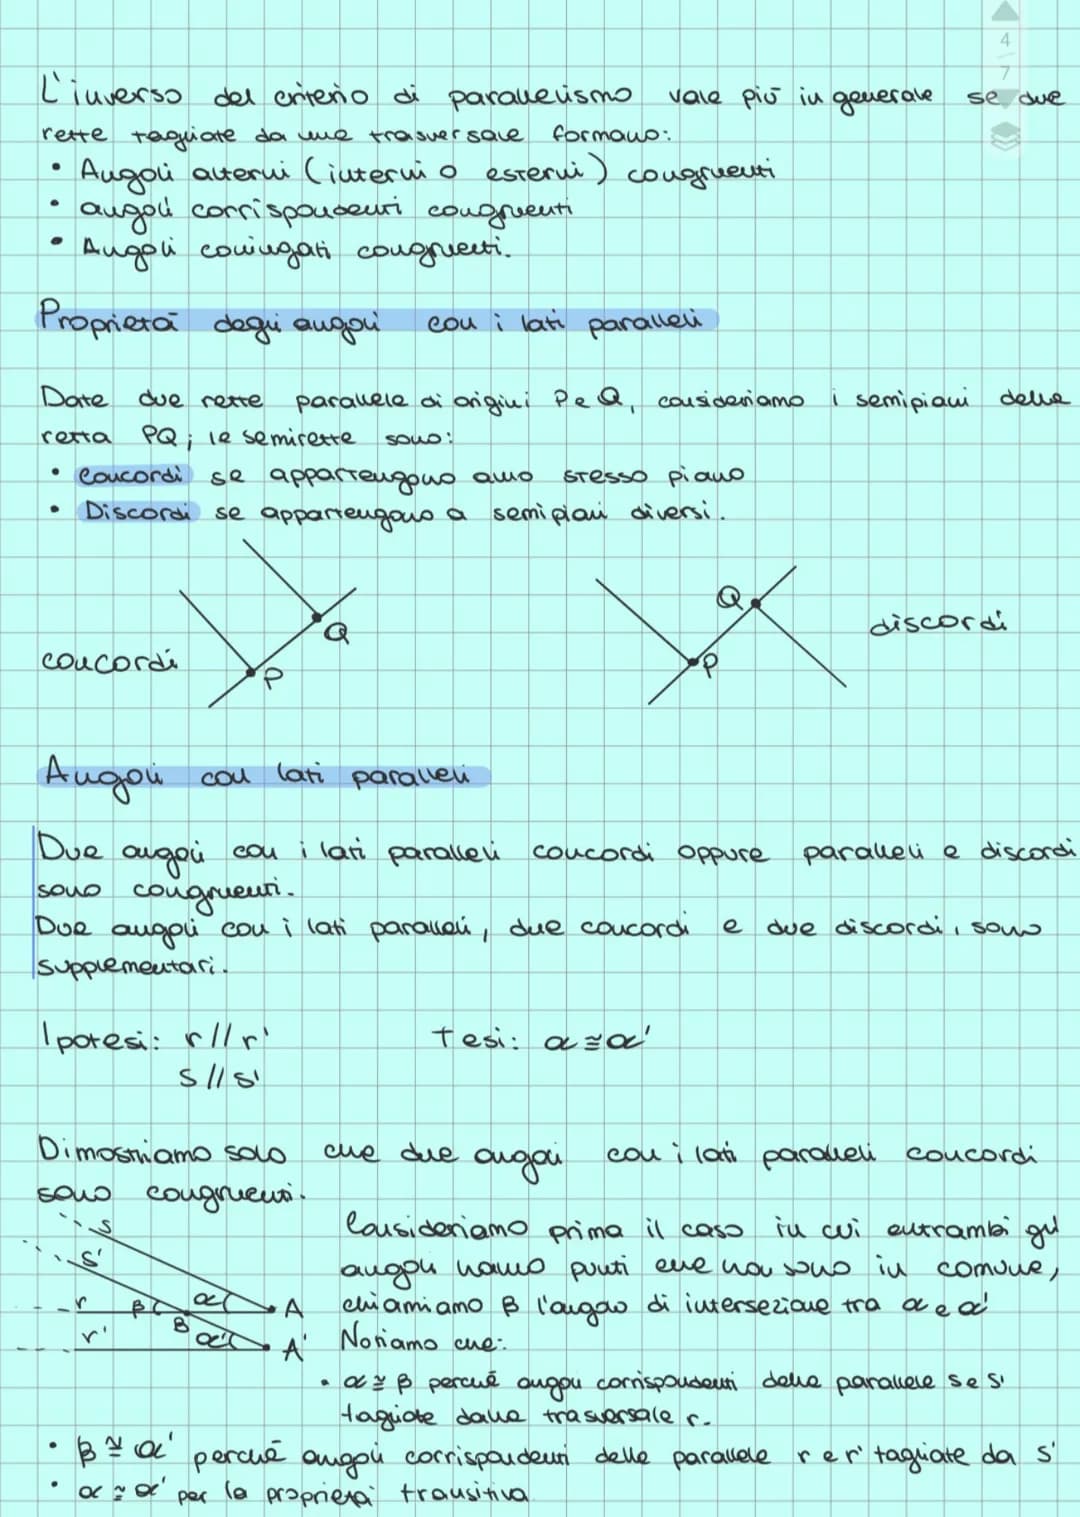 4
7
L'inverso del criterio di parallelismo vale più in generale se due
rette tagliate da una trasversale formano:
• Angoli alterni (interni o esterni) congruenti
• angoli corrispondenti congruenti
• Angoli coniugati congruenti.
Proprietà degli angoli con i lati paralleli
Date due rette parallele di origini P e Q, consideriamo i semipiani della
retta PQ; le semirette sono:
• Concordi se appartengono allo stesso piano
• Discordi se appartengono a semipiani diversi.
concordi P Q
P Q discordi
Angoli con lati paralleli
Due angoli con i lati paralleli concordi oppure paralleli e discordi
sono congruenti.
Due angoli con i lati paralleli, due concordi e due discordi, sono
supplementari.
Ipotesi: r//r' Tesi: α≅α'
s//s'
Dimostriamo solo che due angoli con i lati paralleli concordi
sono congruenti.
s
s'
r β α A
r' B α' A'
Consideriamo prima il caso in cui entrambi gli
angoli hanno punti che non sono in comune,
chiamiamo B l'angolo di intersezione tra α e α'
Notiamo che:
• α≅β perché angoli corrispondenti delle parallele s e s'
tagliate dalla trasversale r.
• β≅α' perché angoli corrispondenti delle parallele r e r' tagliate da s'
• α≅α' per la proprietà transitiva